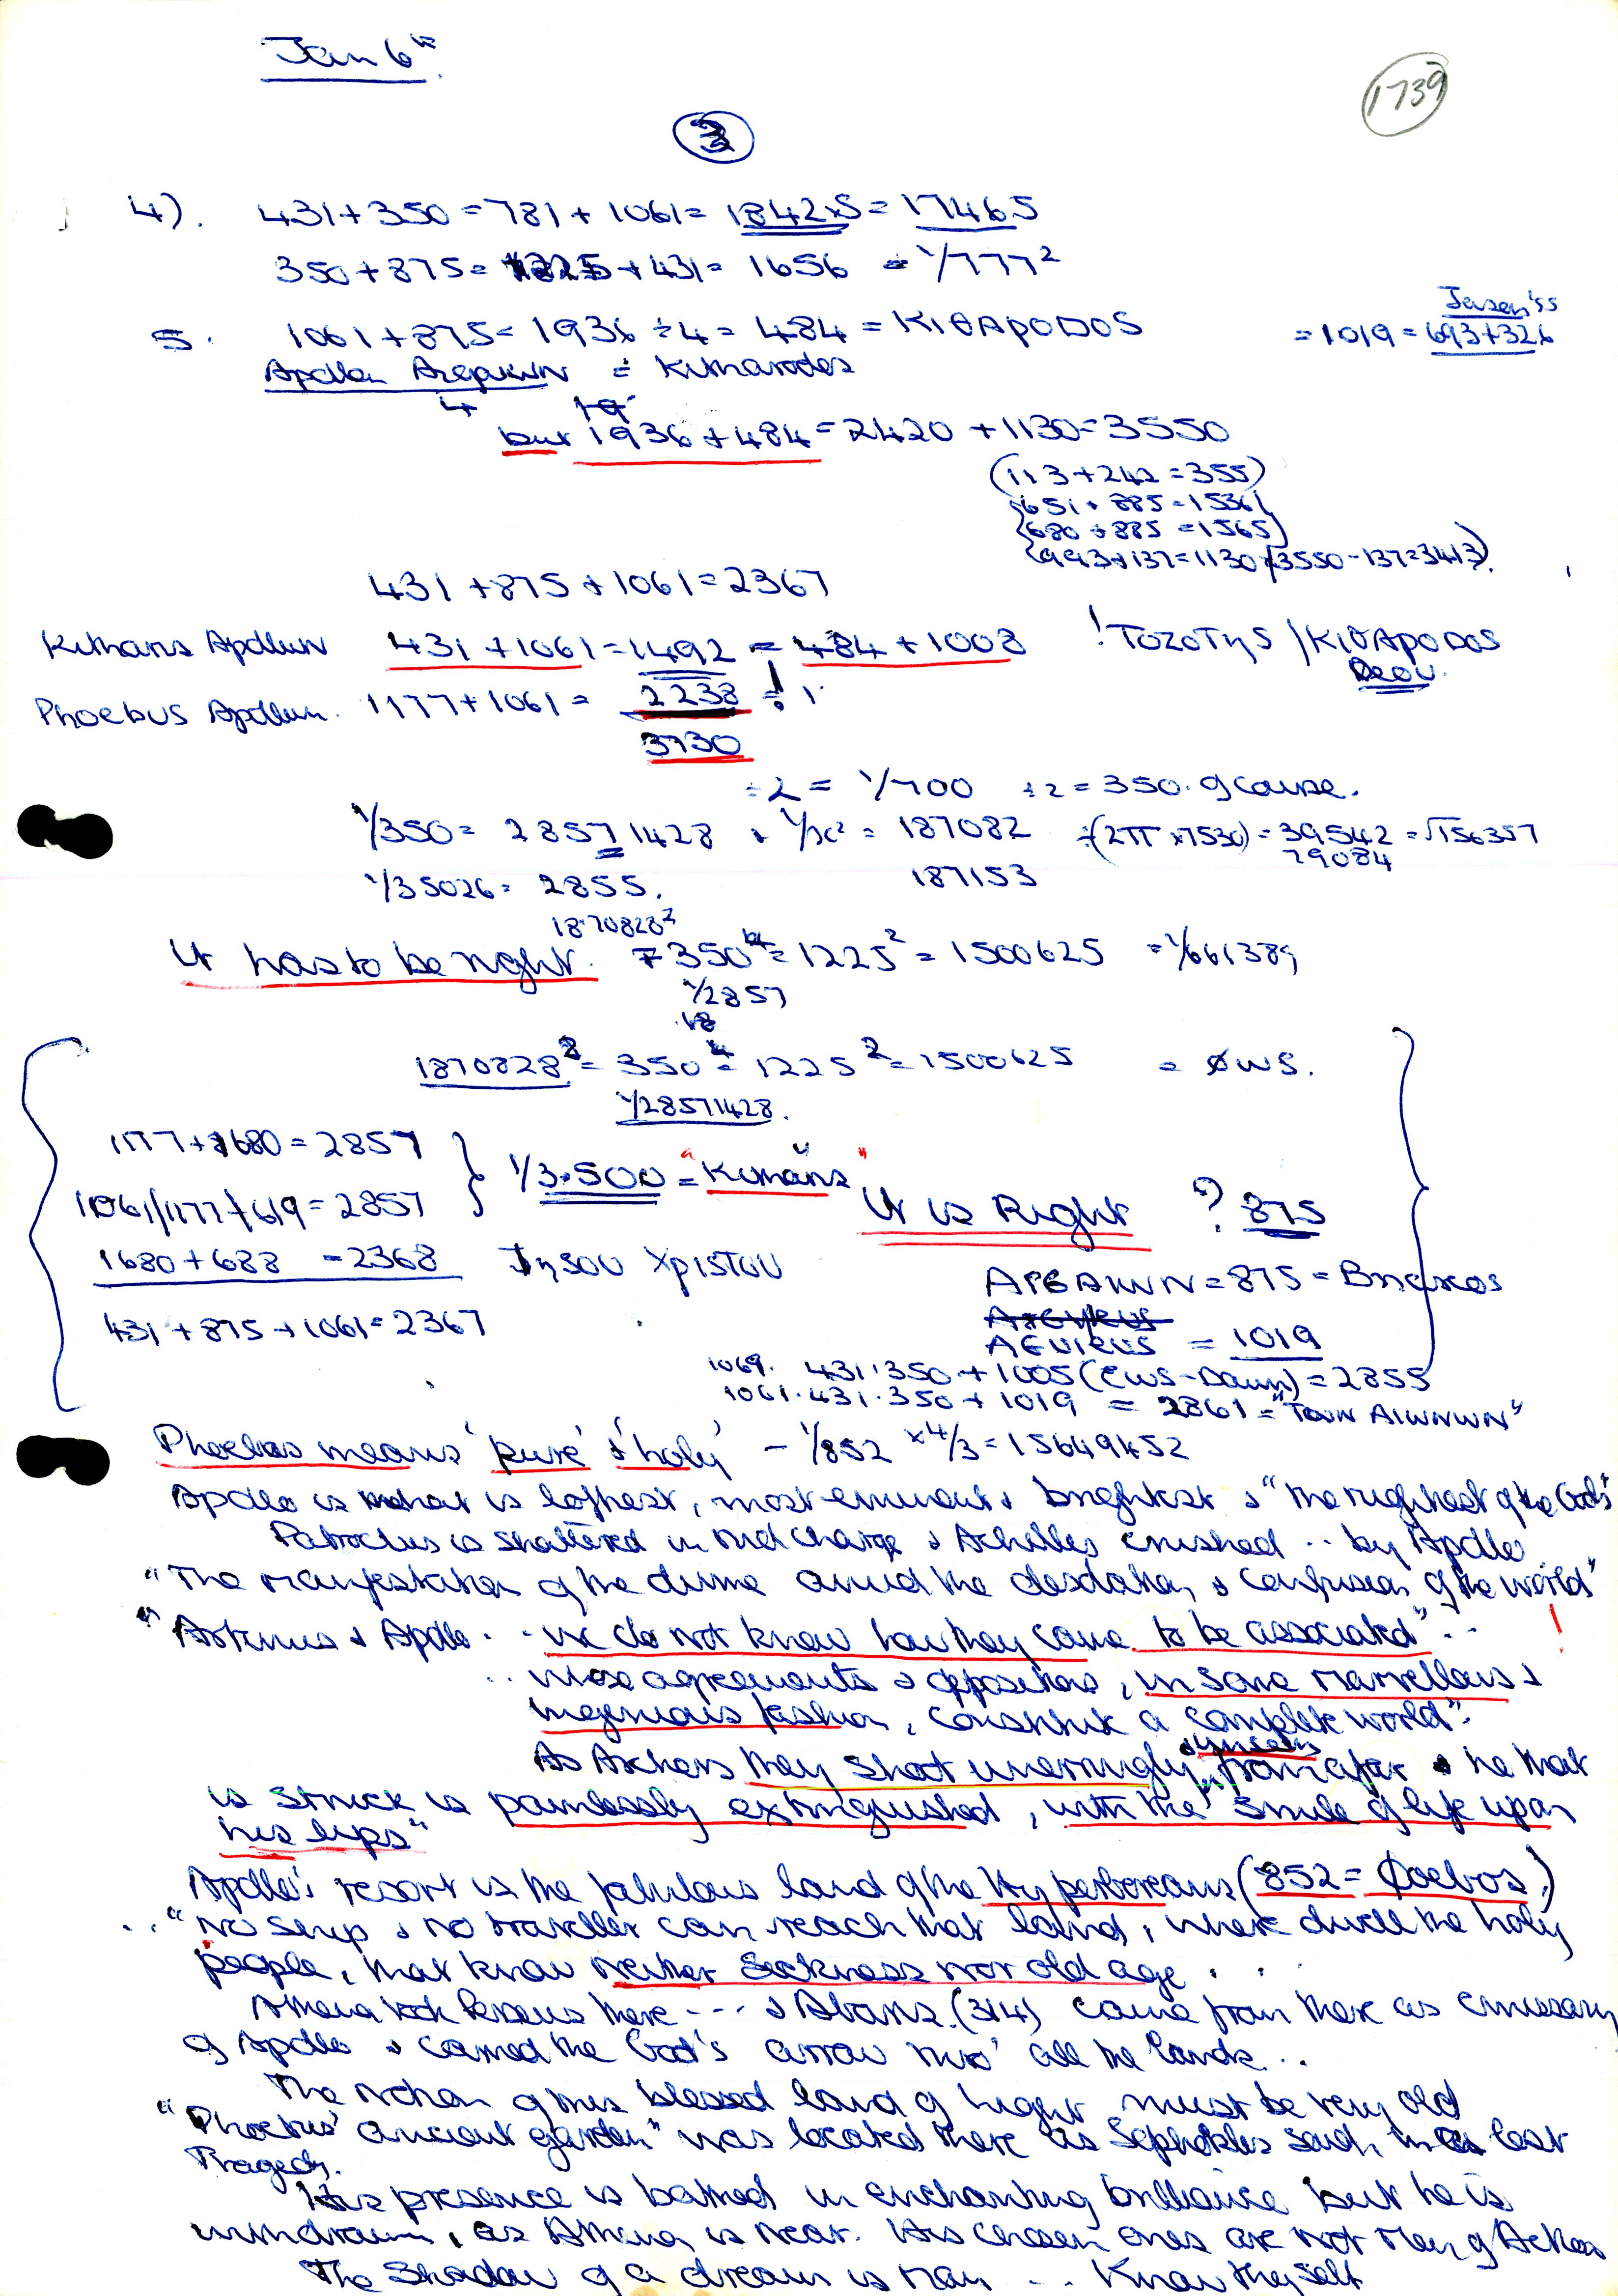 Jan 6th.
1739
3
4). 431+350=781+1061=1842.5=17465
350+875=1225+431=1656 = 1/7772
5. 1061+875=1936÷4=484=ΚΙΘΑΡΟDΟS =1019=693+326
Apollon = Kitharodos
but 1936+484=2420+1130=3550
(113+242=355)
651+885=1536
680+885=1565)
(993+137=1130/3550-137=3413).
431+875+1061=2367
Kitharis Apollwn 431+1061=1492=484+1008 !TOZOTηS/KIΘΑΡΟDΟS
Phoebus Apollwn. 1177+1061= 2238
3730
÷2= 1/700 ÷2=350. of course.
1/350= 285711428 + 1/x²= 187082 ÷(2π×7530)=39542=√156357
79084
1/35026= 2855. 187153
18.708282
It has to be right. 3504=1225²=1500625 =1/661389
1/2857
18
18708288=3504=1225²=1500625 = ØWS.
1/28571428.
1177+1680=2857
1061/1177/+619=2857 1/3.500="Kitharis" It is Right ? 875
1680+688 =2368 Iηsou Χριstou
431+875+1061=2367 =875=
AGUIEUS =1019
1069. 431.350.+1005(EWS-Dawn)=2855
1061.431.350+1019 = 2861="TωN AIWNWN"
Phoebus means 'pure' & 'holy' - 1/852 ×4/3=15649452
Apollo is what is loftiest, most eminent & brightest & "the mightiest of the Gods"
Patroclus is shattered in mid charge & Achilles crushed .. by Apollo
"The manifestation of the divine amid the desolation & confusion of the world"
"Artemis & Apollo .. we do not know how they came to be associated" .. !
.. whose agreements & oppositions, in some marvellous &
ingenious fashion, constitute a complete world".
As Archers they shoot unerringly, unseen from afar & he that
is struck is painlessly extinguished, with the smile of life upon
his lips"
Apollo's resort is the fabulous land of the Hyperboreans (852=Φοebos.)
.. "no ship & no traveller can reach that land, where dwell the holy
people, that know neither sickness nor old age . . .
Athena took Perseus there --- & Abaris.(314) came from there as emissary
of Apollo & carried the God's arrow thro' all the lands ..
The notion of this blessed land of light must be very old
"Phoebus' ancient garden" was located there as Sophokles said, in a lost
Tragedy.
His presence is bathed in enchanting brilliance but he is
withdrawn, as Athena is near. His chosen ones are not Men of Action
The Shadow of a dream is man ... Know thyself